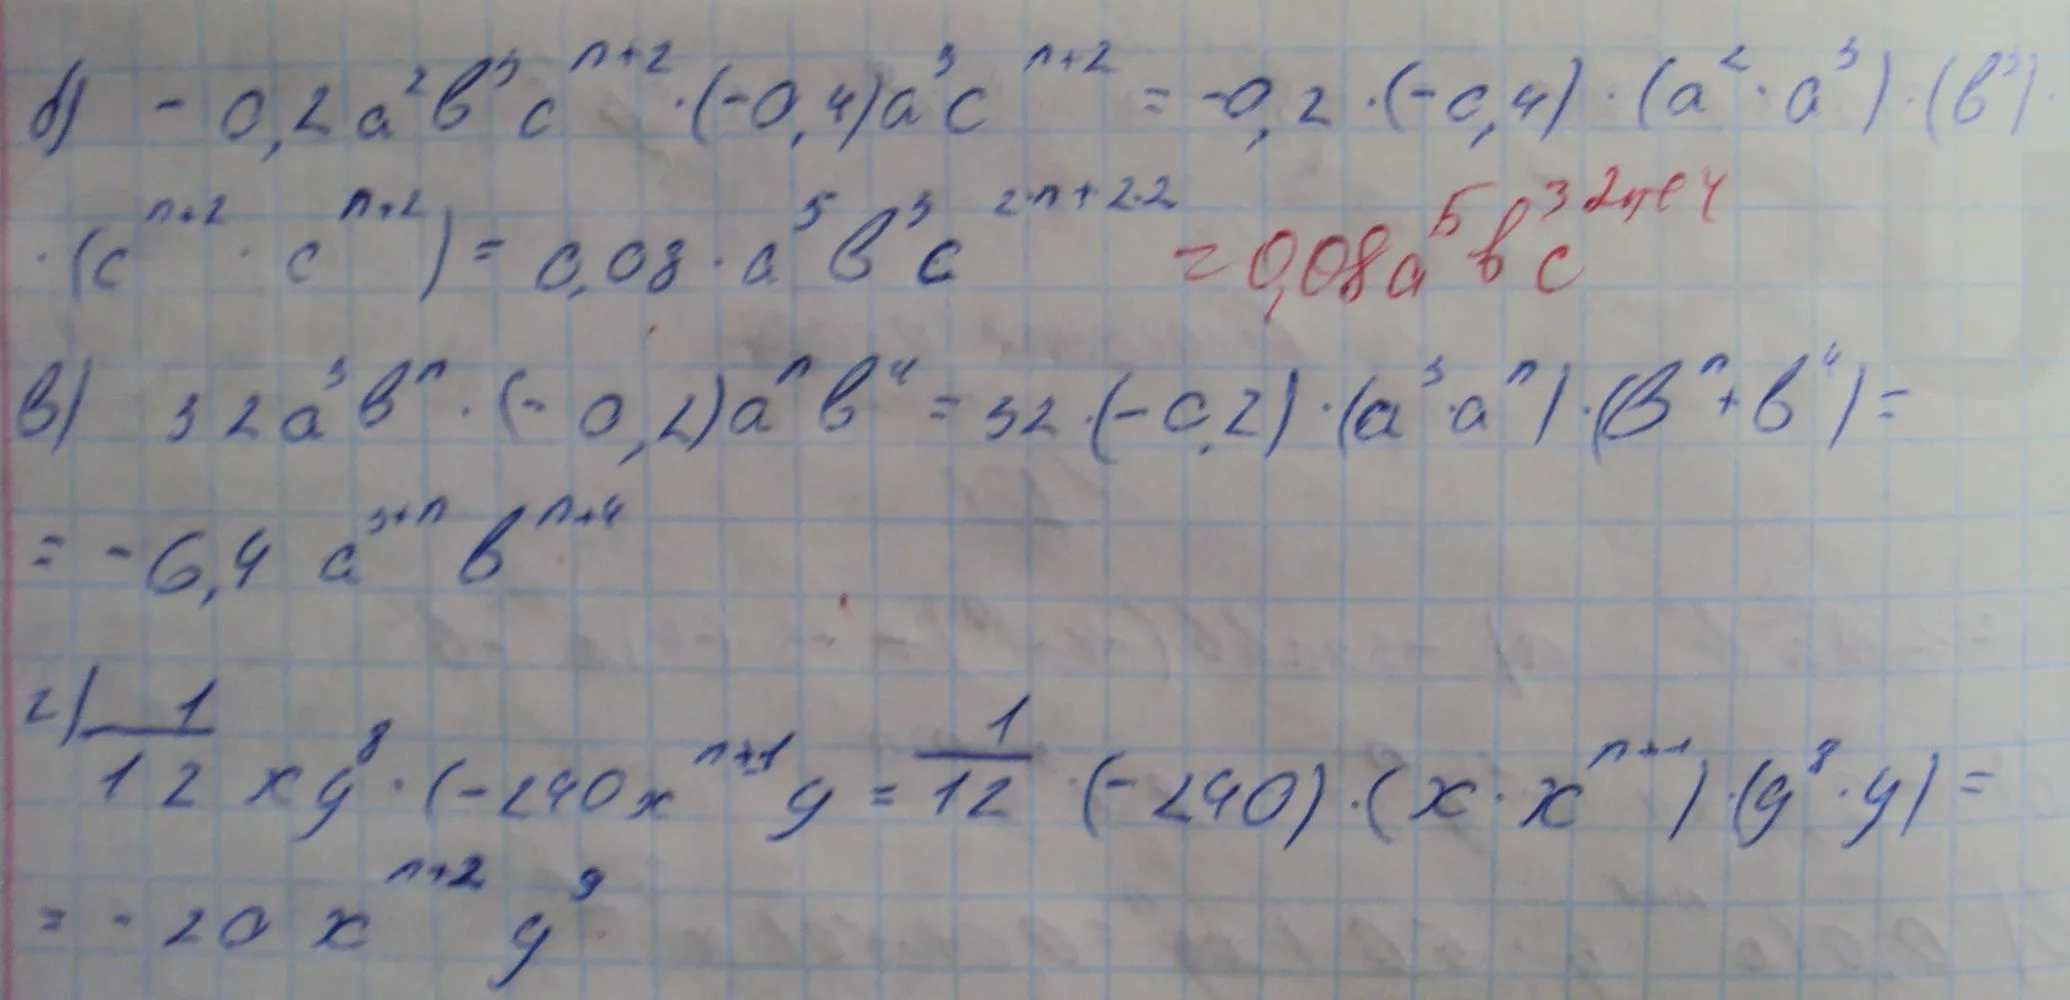 б) - 0,2a²b³c^(n+2) · (-0,4)a³c^(n+2) = -0,2 · (-0,4) · (a² · a³) · (b³) ·
· (c^(n+2) · c^(n+2)) = 0,08 · a⁵b³c^(2·n+2·2) = 0,08a⁵b³c^(2n+4)
в) 32a³b^n · (-0,2)a^n b⁴ = 32 · (-0,2) · (a³·a^n) · (b^n + b⁴) =
= -6,4 a^(3+n) b^(n+4)
г) 1/12 xy⁸ · (-240x^(n+1) y = 1/12 · (-240) · (x · x^(n+1)) · (y⁸ · y) =
= -20 x^(n+2) y⁹